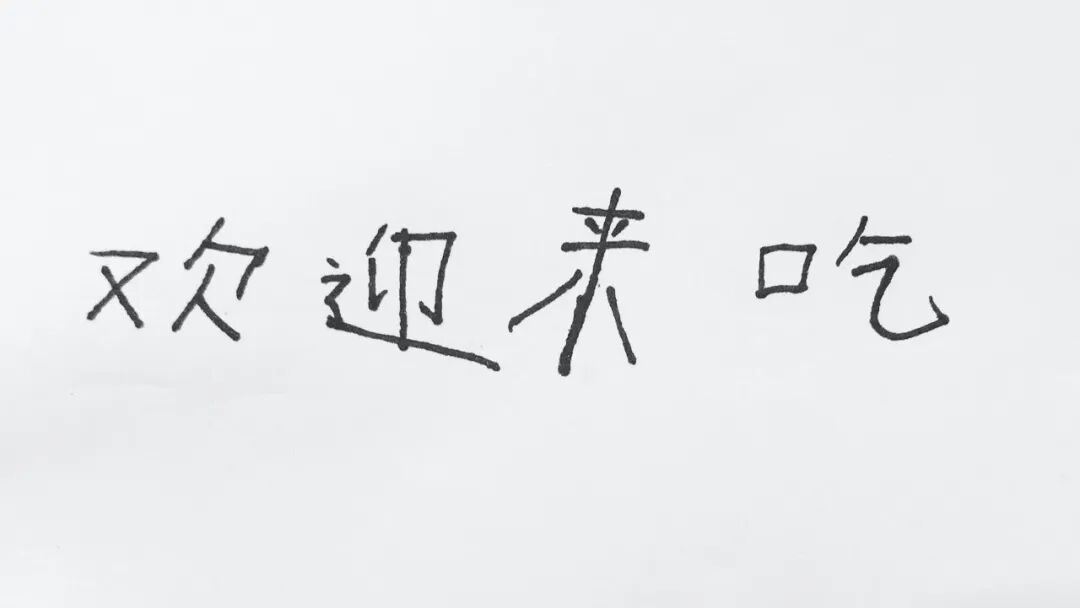 欢迎来吃